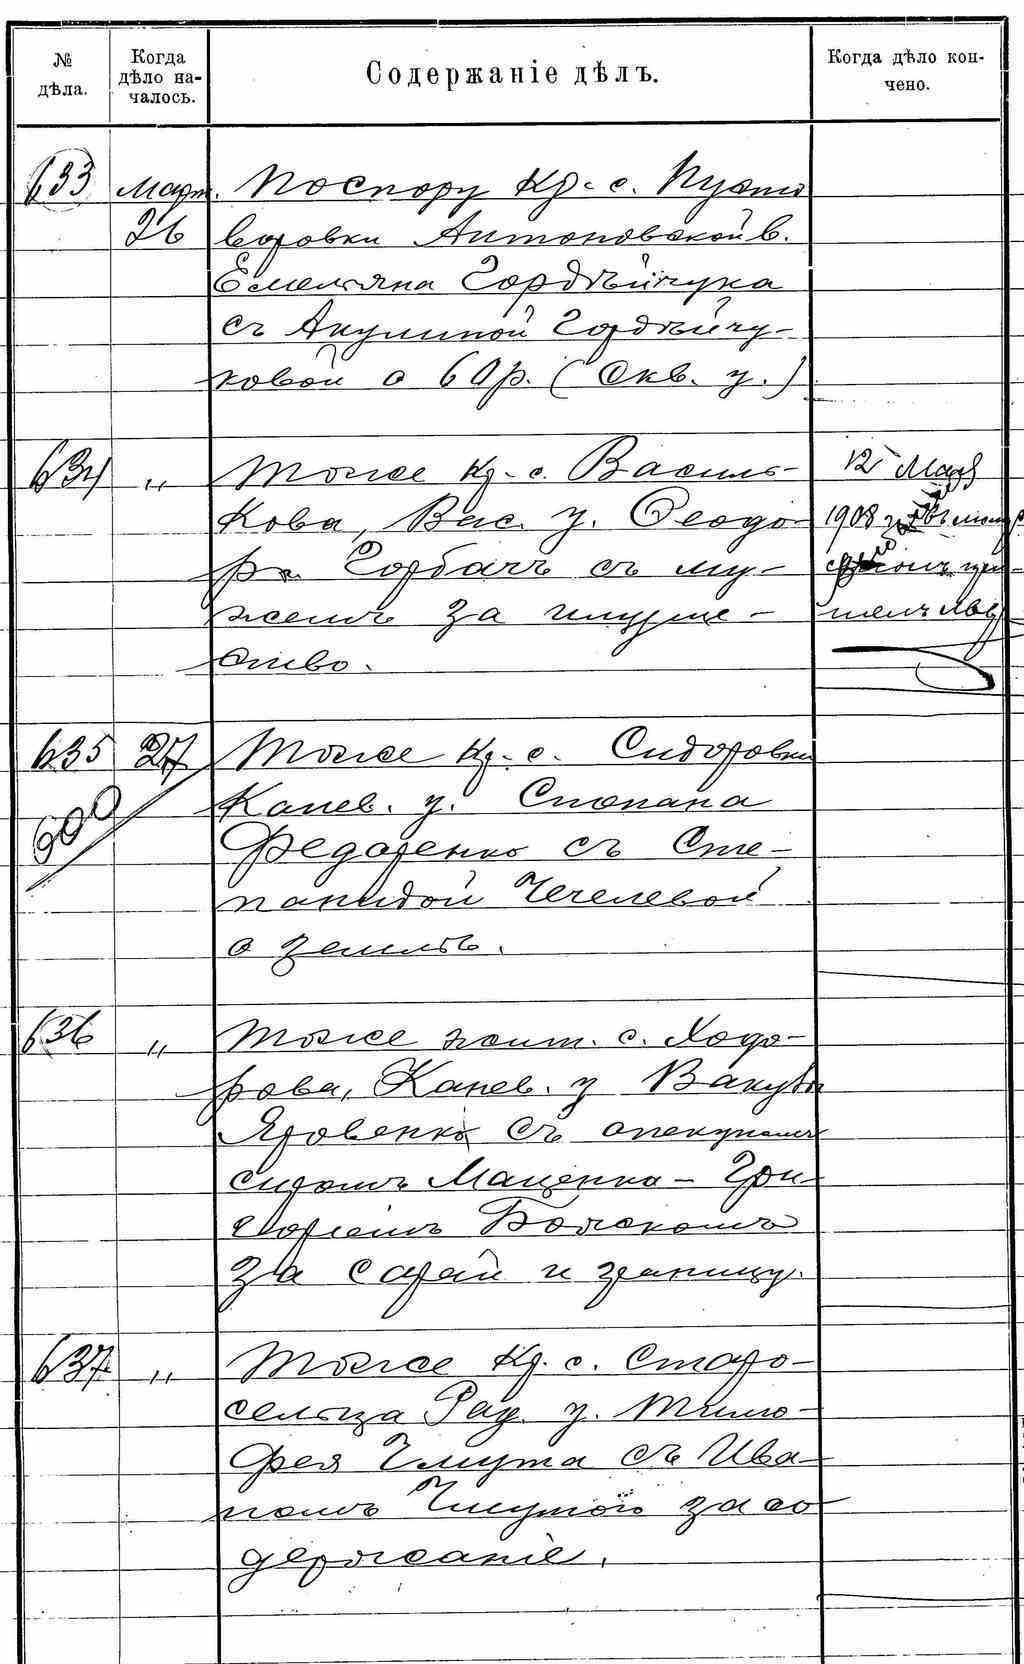 № дѣла.
Когда дѣло началось.
Содержаніе дѣлъ.
Когда дѣло кончено.
633 Март. По спору кр-с. Пусто
26 варовки Антоновской в.
Емельяна Гордѣйчука
съ Акулиной Гордѣйчу-
ковой о 60 р. (Скв. у.)
634 " Тоже кр-с. Василь-
кова, Вас. у. Ѳеодо-
ра Горбачъ съ му-
жемъ за имуще-
ство.
12 Мая
1908 г.
635 27 Тоже кр-с. Сидоровки
600
Канев. у. Степана
Федоренко съ Сте-
панидой Чечелевой
о землѣ.
636 " Тоже жит. с. Ходо-
рова, Канев. у Вакулы
Яровенко съ опекуномъ
сиротъ Маценка - Гри-
горіемъ
за сарай и границу.
637 " Тоже кр. с. Старо-
сельца Рад. у. Тимо-
фея Чмута съ Ива-
номъ Чмутой за со
держаніе.